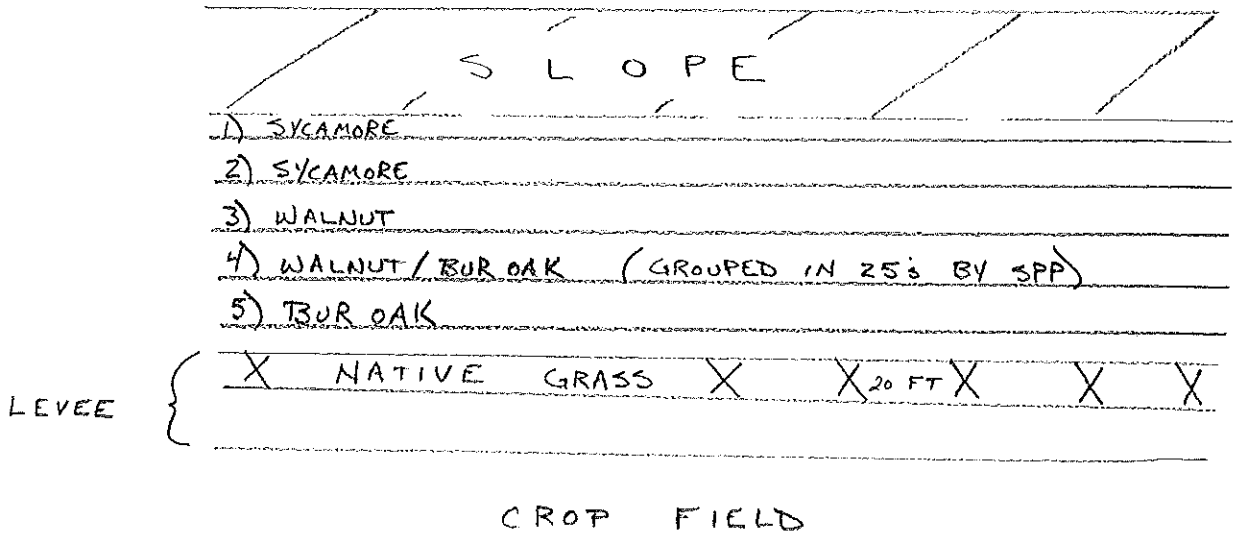 SLOPE
1) SYCAMORE
2) SYCAMORE
3) WALNUT
4) WALNUT/BUR OAK (GROUPED IN 25's BY SPP)
5) BUR OAK
X NATIVE GRASS X X 20 FT X X X
LEVEE
CROP FIELD